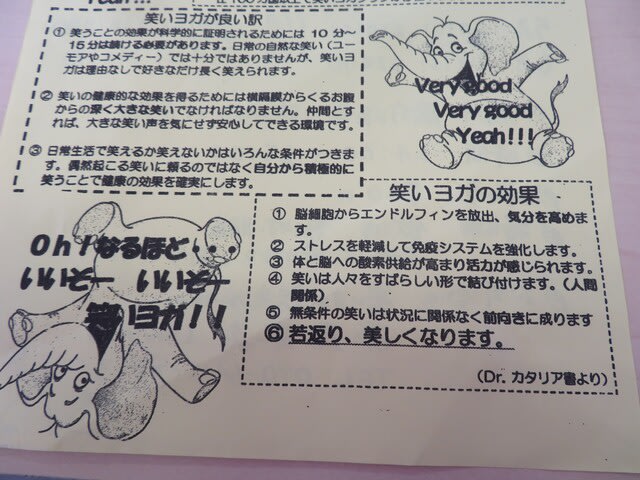 Yeah!!!
笑いヨガが良い訳
① 笑うことの効果が科学的に証明されるためには 10 分～
15 分は続ける必要があります。日常の自然な笑い（ユー
モアやコメディー）では十分ではありませんが、笑いヨ
ガは理由なしで好きなだけ長く笑えられます。
② 笑いの健康的な効果を得るためには横隔膜からくるお腹
からの深く大きな笑いでなければなりません。仲間とす
れば、大きな笑い声を気にせず安心してできる環境です。
③ 日常生活で笑えるか笑えないかはいろんな条件がつきま
す。偶然起こる笑いに頼るのではなく自分から積極的に
笑うことで健康の効果を確実にします。
Very good
Very good
Yeah!!!
笑いヨガの効果
① 脳細胞からエンドルフィンを放出、気分を高めま
す。
② ストレスを軽減して免疫システムを強化します。
③ 体と脳への酸素供給が高まり活力が感じられます。
④ 笑いは人々をすばらしい形で結び付けます。（人間
関係）
⑤ 無条件の笑いは状況に関係なく前向きに成ります
⑥ 若返り、美しくなります。
（Dr. カタリア書より）
Oh!なるほど
いいぞー いいぞー
笑いヨガ!!